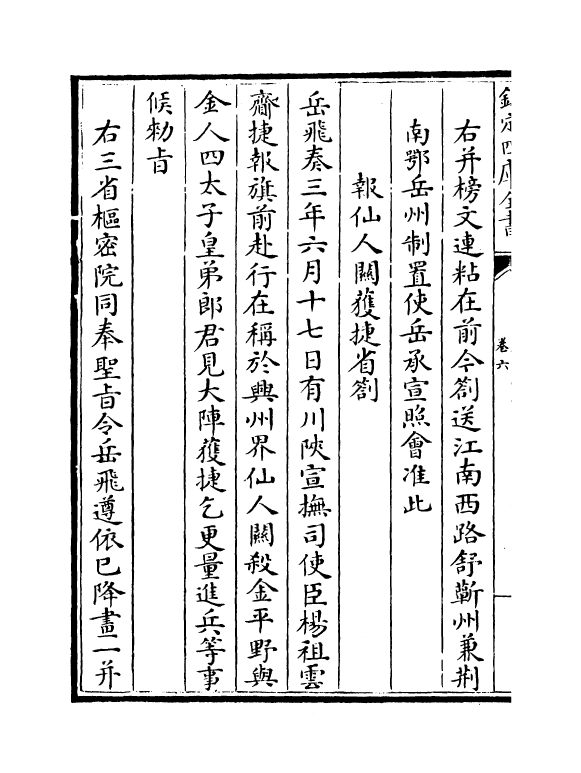 欽定四庫全書
卷六
右并榜文連粘在前今劄送江南西路舒蘄州兼荆
南鄂岳州制置使岳承宣照會准此
報仙人關獲捷省劄
岳飛奏三年六月十七日有川陝宣撫司使臣楊祖雲
齎捷報旗前赴行在稱於興州界仙人關殺金平野與
金人四太子皇弟郎君見大陣獲捷乞更量進兵等事
候勑旨
右三省樞密院同奉聖旨令岳飛遵依已降畫一并